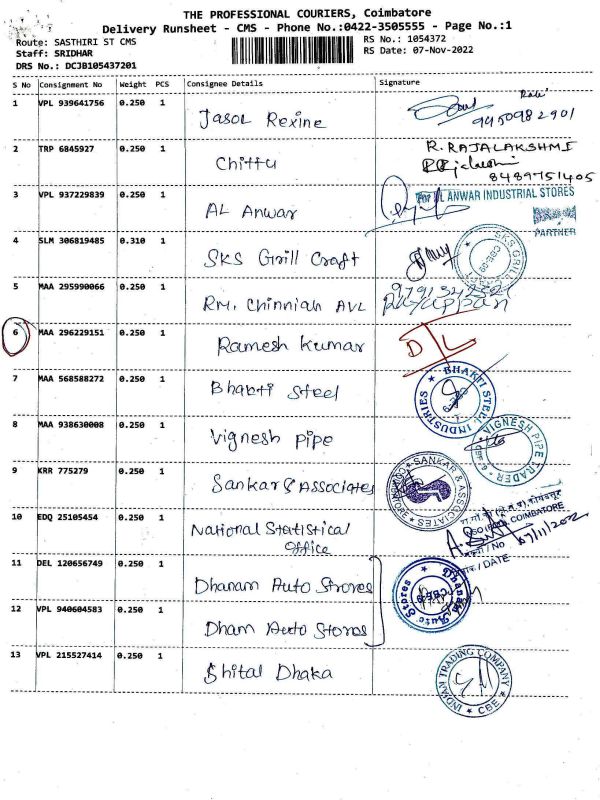 THE PROFESSIONAL COURIERS, Coimbatore
Delivery Runsheet - CMS - Phone No.:0422-3505555 - Page No.:1
Route: SASTHIRI ST CMS RS No.: 1054372
Staff: SRIDHAR RS Date: 07-Nov-2022
DRS No.: DCJB105437201
S No Consignment No Weight PCS Consignee Details Signature
1 VPL 939641756 0.250 1 Jasol Rexine 9450982901
2 TRP 6845927 0.250 1 Chittu R. RAJALAKSHMI
8489751405
3 VPL 937229839 0.250 1 AL Anwar For AL ANWAR INDUSTRIAL STORES
PARTNER
4 SLM 306819485 0.310 1 SKS Grill Craft SKS GRILL CRAFT
5 MAA 295990066 0.250 1 RM. Chinniah AVL
6 MAA 296229151 0.250 1 Ramesh Kumar D/L
7 MAA 568588272 0.250 1 Bhakti Steel BHAKTI STEEL INDUSTRIES
8 MAA 938630008 0.250 1 Vignesh Pipe VIGNESH PIPE TRADER
9 KRR 775279 0.250 1 Sankar & Associates SANKAR & ASSOCIATES
10 EDQ 25105454 0.250 1 National Statistical
Office COIMBATORE
07/11/2022
/ DATE
11 DEL 120656749 0.250 1 Dhanam Auto Strores Dhanam Auto Stores
12 VPL 940604583 0.250 1 Dham Auto Stores
13 VPL 215527414 0.250 1 Shital Dhaka INDIAN TRADING COMPANY
CBE